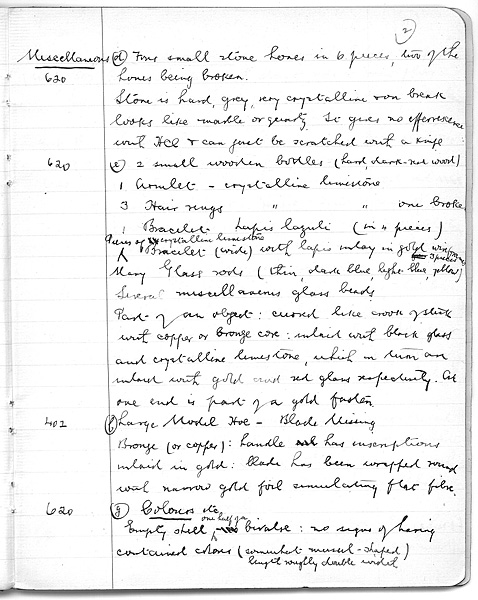 2
Miscellaneous (d) Four small stone hones in 6 pieces, two of the
620 hones being broken.
Stone is hard, grey, very crystalline & on break
looks like marble or quartz. It gives no effervescence
with HCl & can just be scratched with a knife.
620 (e) 2 small wooden bottles (hard, dark-red wood)
1 Armlet - crystalline limestone
3 Hair rings " " one broken
1 Bracelet Lapis lazuli (in 4 pieces)
crystalline limestone
Bracelet (wide) with lapis inlay in gold 3 pieces
Many Glass rods (thin, dark blue, light blue, yellow)
Several miscellaneous glass beads.
Part of an object: curved like crook of stick
with copper or bronze core: inlaid with black glass
and crystalline limestone, which in turn are
inlaid with gold and red glass respectively. At
one end is part of a gold
402 (f) Large Model Hoe - Blade Missing
Bronze (or copper): handle has inscriptions
inlaid in gold: blade has been wrapped round
with narrow gold foil simulating flat fibre.
620 (g) Colours etc
one half of a
Empty shell bivalve: no signs of having
contained colours (somewhat mussel-shaped)
length roughly double width